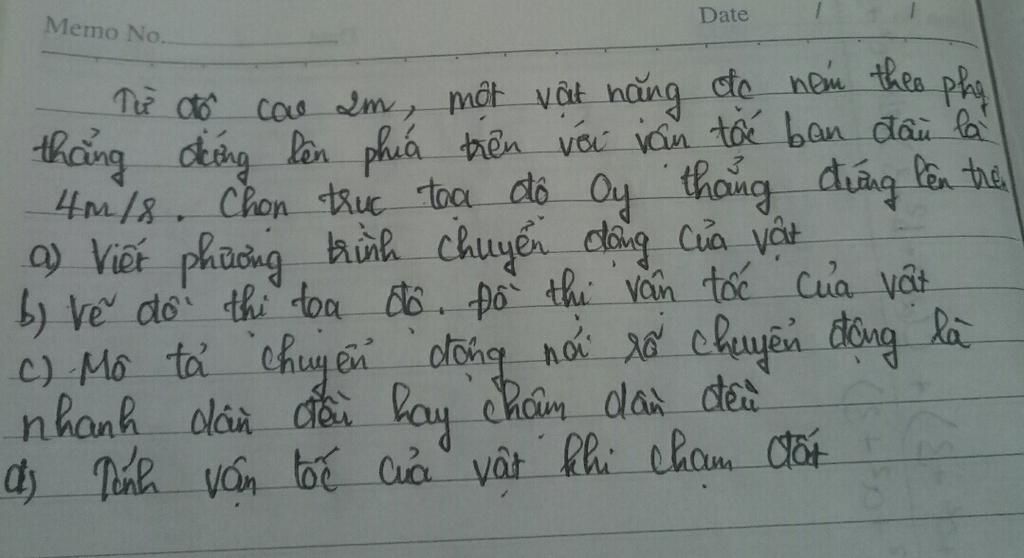 Memo No.
Date / /
Từ độ cao 2m, một vật nặng đc ném theo phg
thẳng đứng lên phía trên với vận tốc ban đầu là
4m/s. Chọn trục toạ độ Oy thẳng đứng lên trên
a) Viết phương trình chuyển động của vật
b) Vẽ đồ thị toạ độ. Đồ thị vận tốc của vật
c) Mô tả chuyển động nói rõ chuyển động là
nhanh dần đều hay chậm dần đều
d) Tính vận tốc của vật khi chạm đất